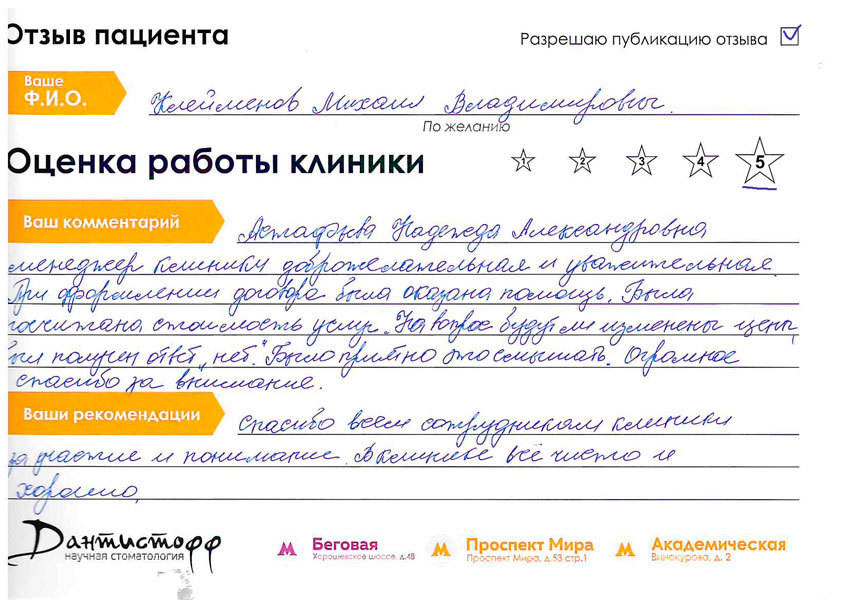 Отзыв пациента
Разрешаю публикацию отзыва
Ваше
Ф.И.О.
Клейменов Михаил Владимировы.
По желанию
Оценка работы клиники
1 2 3 4 5
Ваш комментарий
Астафьева Надежда Александровна
менеджер клиники доброжелательная и уважительная.
При оформлении договора была оказана помощь. Была
посчитана стоимость услуг. На вопрос будут ли изменены цены,
был получен ответ "нет". Было приятно это слышать. Огромное
спасибо за внимание.
Ваши рекомендации
Спасибо всем сотрудникам клиники
за участие и понимание. В клинике всё чисто и
хорошо,
Дантистофф
научная стоматология
Беговая
Хорошевское шоссе, д.48
Проспект Мира
Проспект Мира, д.53 стр.1
Академическая
Винокурова, д. 2